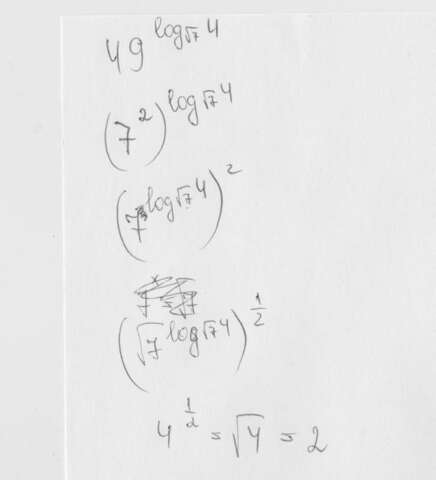 49^{log_{√7} 4}
(7^2)^{log_{√7} 4}
(7^{log_{√7} 4})^2
(√7^{log_{√7} 4})^{1/2}
4^{1/2} = √4 = 2